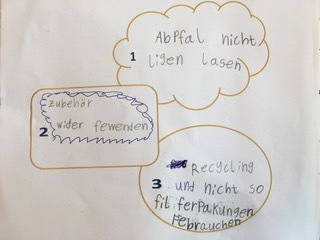 1
Abpfal nicht
ligen lasen
2
zubehör
wider fewenden
3
Recycling
und nicht so
fil ferpakungen
gebrauchen